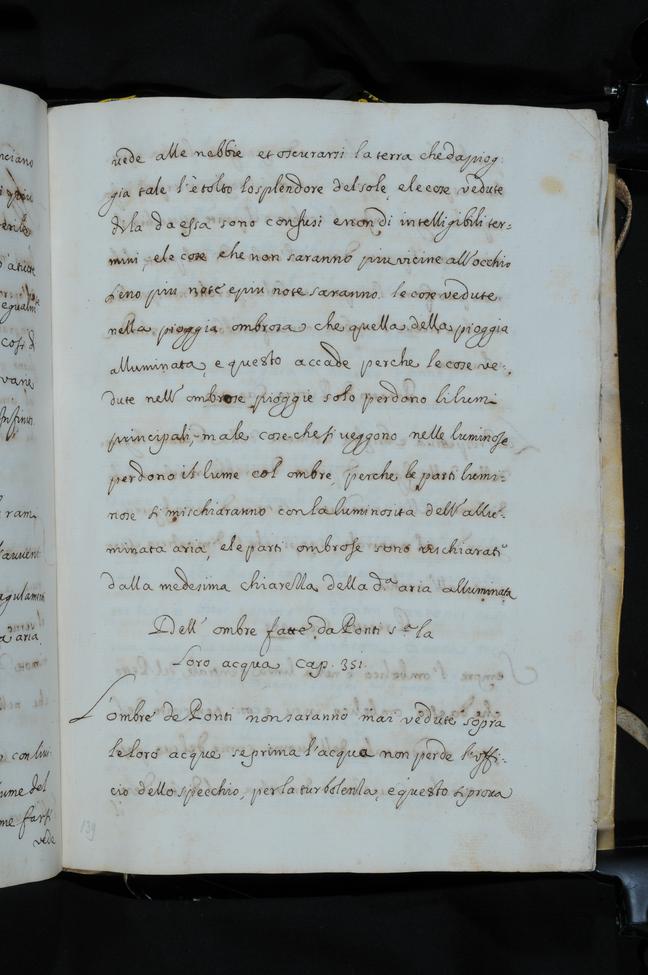 vede alle nebbie et oscurarsi la terra che da piog
gia tale l'è tolto lo splendore del sole, e le cose vedute
di la da essa sono confusi e non di intelligibili ter-
mini, e le cose che non saranno piu vicine all'occhio
seno piu note e piu note saranno le cose vedute
nella pioggia ombrosa che quella della pioggia
alluminata, e questo accade perche le cose ve-
dute nell'ombrose pioggie solo perdono li lumi
principali, ma le cose che si veggono nelle luminose
perdono il lume col ombre, perche le parti lumi-
nose si mischiaranno con la luminosita dell'allu-
minata aria, e le parti ombrose sono rischiarati
dalla medesima chiarella della d.ª aria alluminata
Dell'ombre fatte da Ponti s.ª la
loro acqua Cap. 351.
L'ombre de Ponti non saranno mai vedute sopra
le loro acque se prima l'acqua non perde l'offi-
cio dello specchio, per la turbolenla, e questo si prova
139
nciano
egualm
cosi d
vane
Infinit
ram
l'avvent
agulament
a aria
con lui
ume del
me farsi
vede